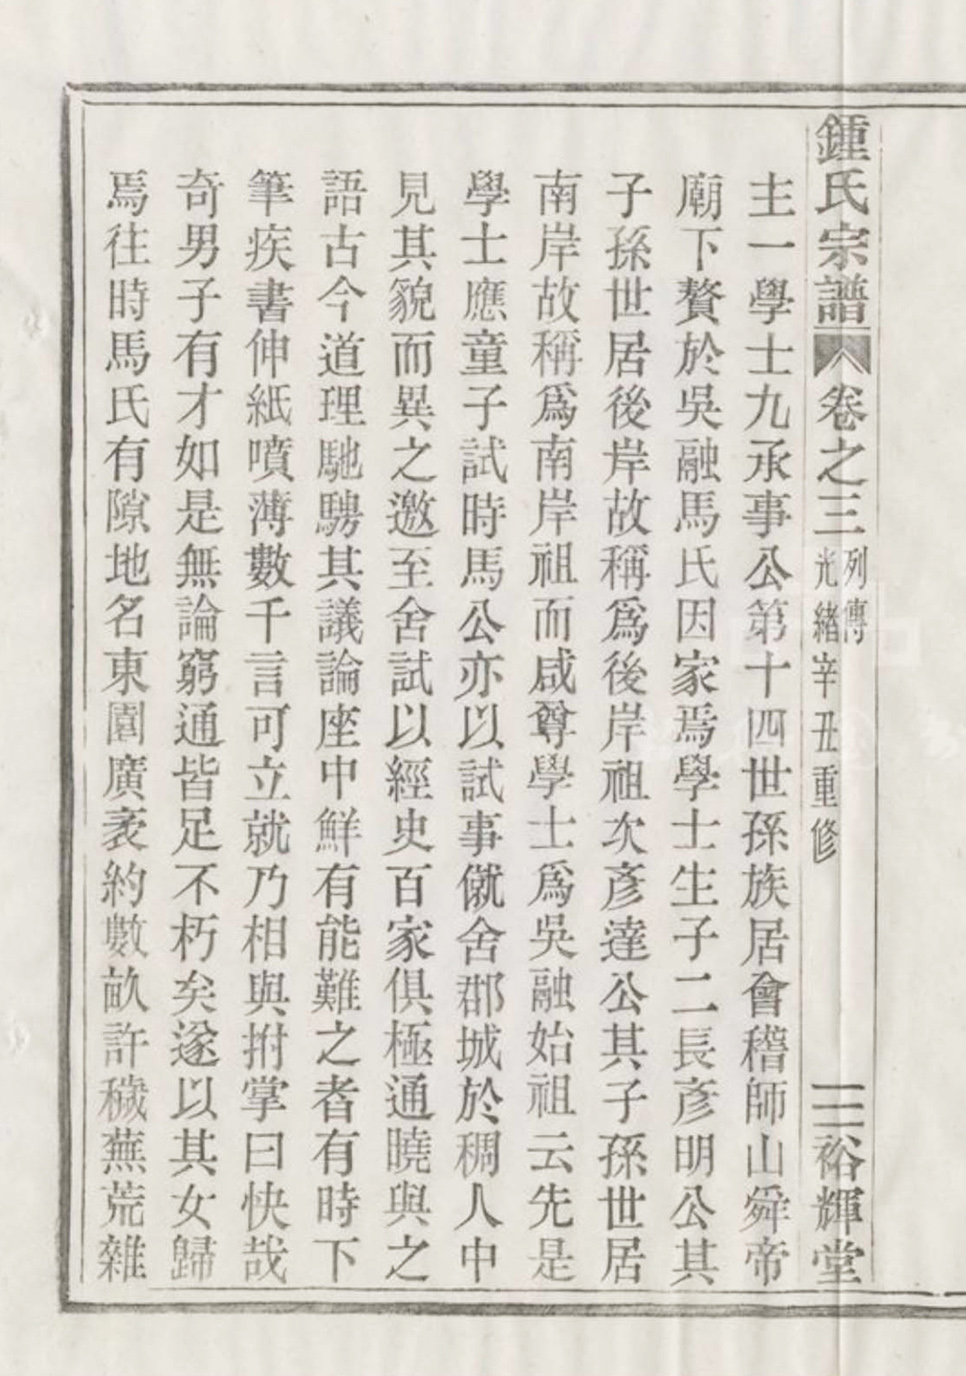 鍾氏宗譜 卷之三 列傳 光緒辛丑重修 三 裕輝堂
主一學士九承事公第十四世孫族居會稽師山舜帝
廟下贅於吳融馬氏因家焉學士生子二長彥明公其
子孫世居後岸故稱爲後岸祖次彥達公其子孫世居
南岸故稱爲南岸祖而咸尊學士爲吳融始祖云先是
學士應童子試時馬公亦以試事僦舍郡城於稠人中
見其貌而異之邀至舍試以經史百家俱極通曉與之
語古今道理馳騁其議論座中鮮有能難之者有時下
筆疾書伸紙噴薄數千言可立就乃相與拊掌曰快哉
奇男子有才如是無論窮通皆足不朽矣遂以其女歸
焉往時馬氏有隙地名東園廣袤約數畝許穢蕪荒雜